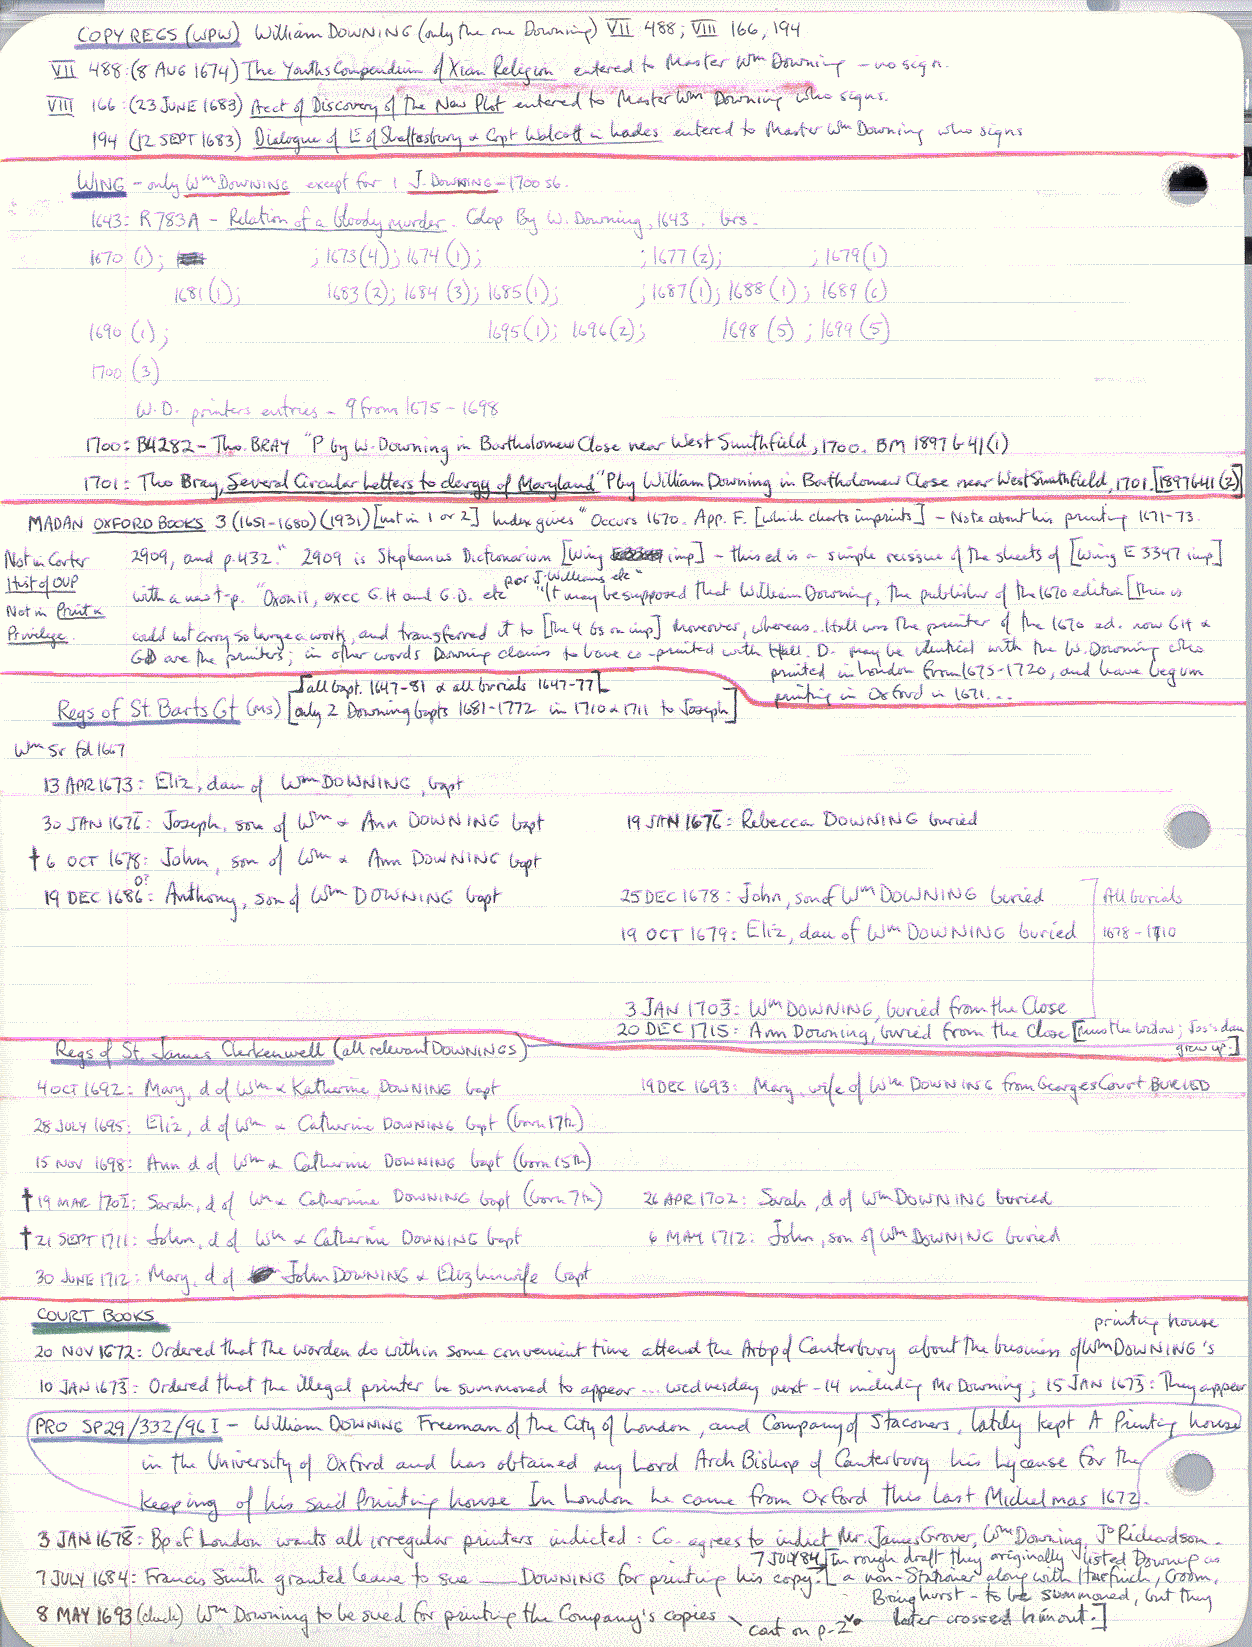 COPY REGS (WPW) William DOWNING (only the one Downing) VII 488; VIII 166, 194
VII 488: (8 AUG 1674) The Youths Compendium of Xian Religion entered to Master Wm Downing - no sign.
VIII 166: (23 JUNE 1683) Acct of Discovery of the New Plot entered to Master Wm Downing who signs.
194 (12 SEPT 1683) Dialogue of E of Shaftesbury & Capt Walcott in hades entered to Master Wm Downing who signs
WING - only Wm DOWNING except for 1 J. DOWNING - 1700
1643: R783A - Relation of a bloody murder. Colop By W. Downing, 1643. brs.
1670 (1); ; 1673 (4); 1674 (1); ; 1677 (2); ; 1679 (1)
1681 (1); 1683 (2); 1684 (3); 1685 (1); ; 1687 (1); 1688 (1); 1689 (6)
1690 (1); 1695 (1); 1696 (2); 1698 (5) ; 1699 (5)
1700 (3)
W.D. printers entries - 9 from 1675-1698
1700: B4282 - Tho. BRAY "P by W. Downing in Bartholomew Close near West Smithfield, 1700. BM 1897 b 41 (1)
1701: Tho Bray, Several Circular Letters to clergy of Maryland "P by William Downing in Bartholomew Close near West Smithfield, 1701. [1897 b 41 (2)]
MADAN OXFORD BOOKS 3 (1651-1680) (1931) [not in 1 or 2] Index gives "Occurs 1670. App. F. [which charts imprints] - Note about his printing 1671-73.
Not in Carter 2909, and p.432." 2909 is Stephanus Dictionarium [Wing imp] - this ed is a simple reissue of the sheets of [Wing E 3347 imp]
Hist of OUP with a new t-p. "Oxonii, excc G.H and G.D. etc por J. Williams etc" "It may be supposed that William Downing, the publisher of the 1670 edition [this is
Not in Print & could not carry so large a work, and transferred it to [the 4 bs on imp] Moreover, whereas.. Hall was the printer of the 1670 ed. now GH &
Privilege. GD are the printers; in other words Downing claims to have co-printed with Hall. D. may be identical with the W. Downing who
printed in London from 1675-1720, and have begun
printing in Oxford in 1671...
Regs of St. Barts Gt (MS) [all bapt. 1647-81 & all burials 1647-77]
[only 2 Downing bapts 1681-1772 in 1710 & 1711 to Joseph]
Wm Sr fd 1667
13 APR 1673: Eliz, dau of Wm DOWNING, bapt
30 JAN 1676/7: Joseph, son of Wm & Ann DOWNING bapt 19 JAN 1676/7: Rebecca DOWNING buried
† 6 OCT 1678: John, son of Wm & Ann DOWNING bapt
0?
19 DEC 1686: Anthony, son of Wm DOWNING bapt 25 DEC 1678: John, son of Wm DOWNING buried All burials
19 OCT 1679: Eliz, dau of Wm DOWNING buried 1678-1710
3 JAN 1703: Wm DOWNING, buried from the Close
20 DEC 1715: Ann Downing, buried from the Close [must be widow; Jos's dau
grew up.]
Regs of St. James Clerkenwell (all relevant DOWNINGS)
4 OCT 1692: Mary, d of Wm & Katherine DOWNING bapt 19 DEC 1693: Mary, wife of Wm DOWNING from Georges Court BURIED
28 JULY 1695: Eliz, d of Wm & Catherine DOWNING bapt (born 17th)
15 NOV 1698: Ann d of Wm & Catherine DOWNING bapt (born 15th)
† 19 MAR 1701/2: Sarah, d of Wm & Catherine DOWNING bapt (born 7th) 26 APR 1702: Sarah, d of Wm DOWNING buried
† 21 SEPT 1711: John, d of Wm & Catherine DOWNING bapt 6 MAY 1712: John, son of Wm DOWNING buried
30 JUNE 1712: Mary, d of John DOWNING & Eliz his wife bapt
COURT BOOKS
printing house
20 NOV 1672: Ordered that the warden do within some convenient time attend the Arbp of Canterbury about the business of Wm DOWNING's
10 JAN 1673: Ordered that the illegal printer be summoned to appear ... Wednesday next - 14 including Mr Downing; 15 JAN 1673: They appear
PRO SP29/332/96 I - William DOWNING Freeman of the City of London, and Company of Staconers, lately kept A Printing house
in the University of Oxford and has obtained my Lord Arch Bishop of Canterbury his Lycense for the
keeping of his said Printing house In London he came from Oxford this Last Michelmas 1672.
3 JAN 1678: Bp of London wants all irregular printers indicted: Co. agrees to indict Mr. James Grover, Wm Downing, Jo Richardson.
7 JULY 84 [In rough draft they originally listed Downing as
7 JULY 1684: Francis Smith granted leave to sue ___ DOWNING for printing his copy. a non-Stationer along with Harfinch, Croom,
Bringhurst - to be summoned, but they
8 MAY 1693 (clark) Wm Downing to be sued for printing the Company's copies later crossed him out.]
cont on p-2vo